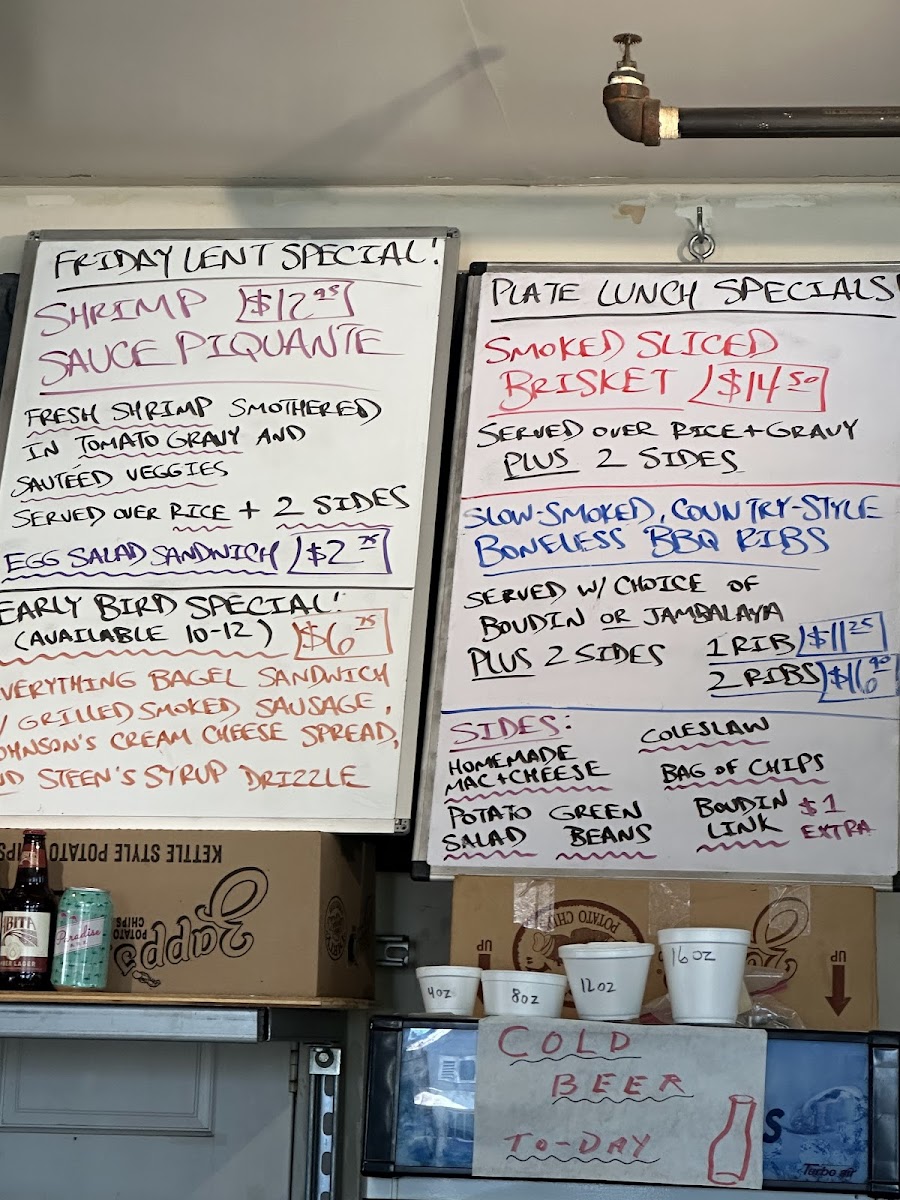 FRIDAY LENT SPECIAL!
SHRIMP $12.95
SAUCE PIQUANTE
FRESH SHRIMP SMOTHERED
IN TOMATO GRAVY AND
SAUTÉED VEGGIES
SERVED OVER RICE + 2 SIDES
EGG SALAD SANDWICH $2.75
EARLY BIRD SPECIAL!
(AVAILABLE 10-12) $6.75
EVERYTHING BAGEL SANDWICH
W/ GRILLED SMOKED SAUSAGE,
JOHNSON'S CREAM CHEESE SPREAD,
AND STEEN'S SYRUP DRIZZLE
PLATE LUNCH SPECIALS!
SMOKED SLICED
BRISKET $14.50
SERVED OVER RICE + GRAVY
PLUS 2 SIDES
SLOW-SMOKED, COUNTRY-STYLE
BONELESS BBQ RIBS
SERVED W/ CHOICE OF
BOUDIN OR JAMBALAYA
PLUS 2 SIDES 1 RIB $11.25
2 RIBS $16.90
SIDES: COLESLAW
HOMEMADE
MAC + CHEESE BAG OF CHIPS
POTATO GREEN BOUDIN $1
SALAD BEANS LINK EXTRA
KETTLE STYLE POTATO CHIPS
Zapp's
POTATO
CHIPS
ABITA
AMBER LAGER
Paradise
POTATO CHIPS
UP
UP
4 OZ
8 OZ
12 OZ
16 OZ
COLD
BEER
TO-DAY
S
Turbo air